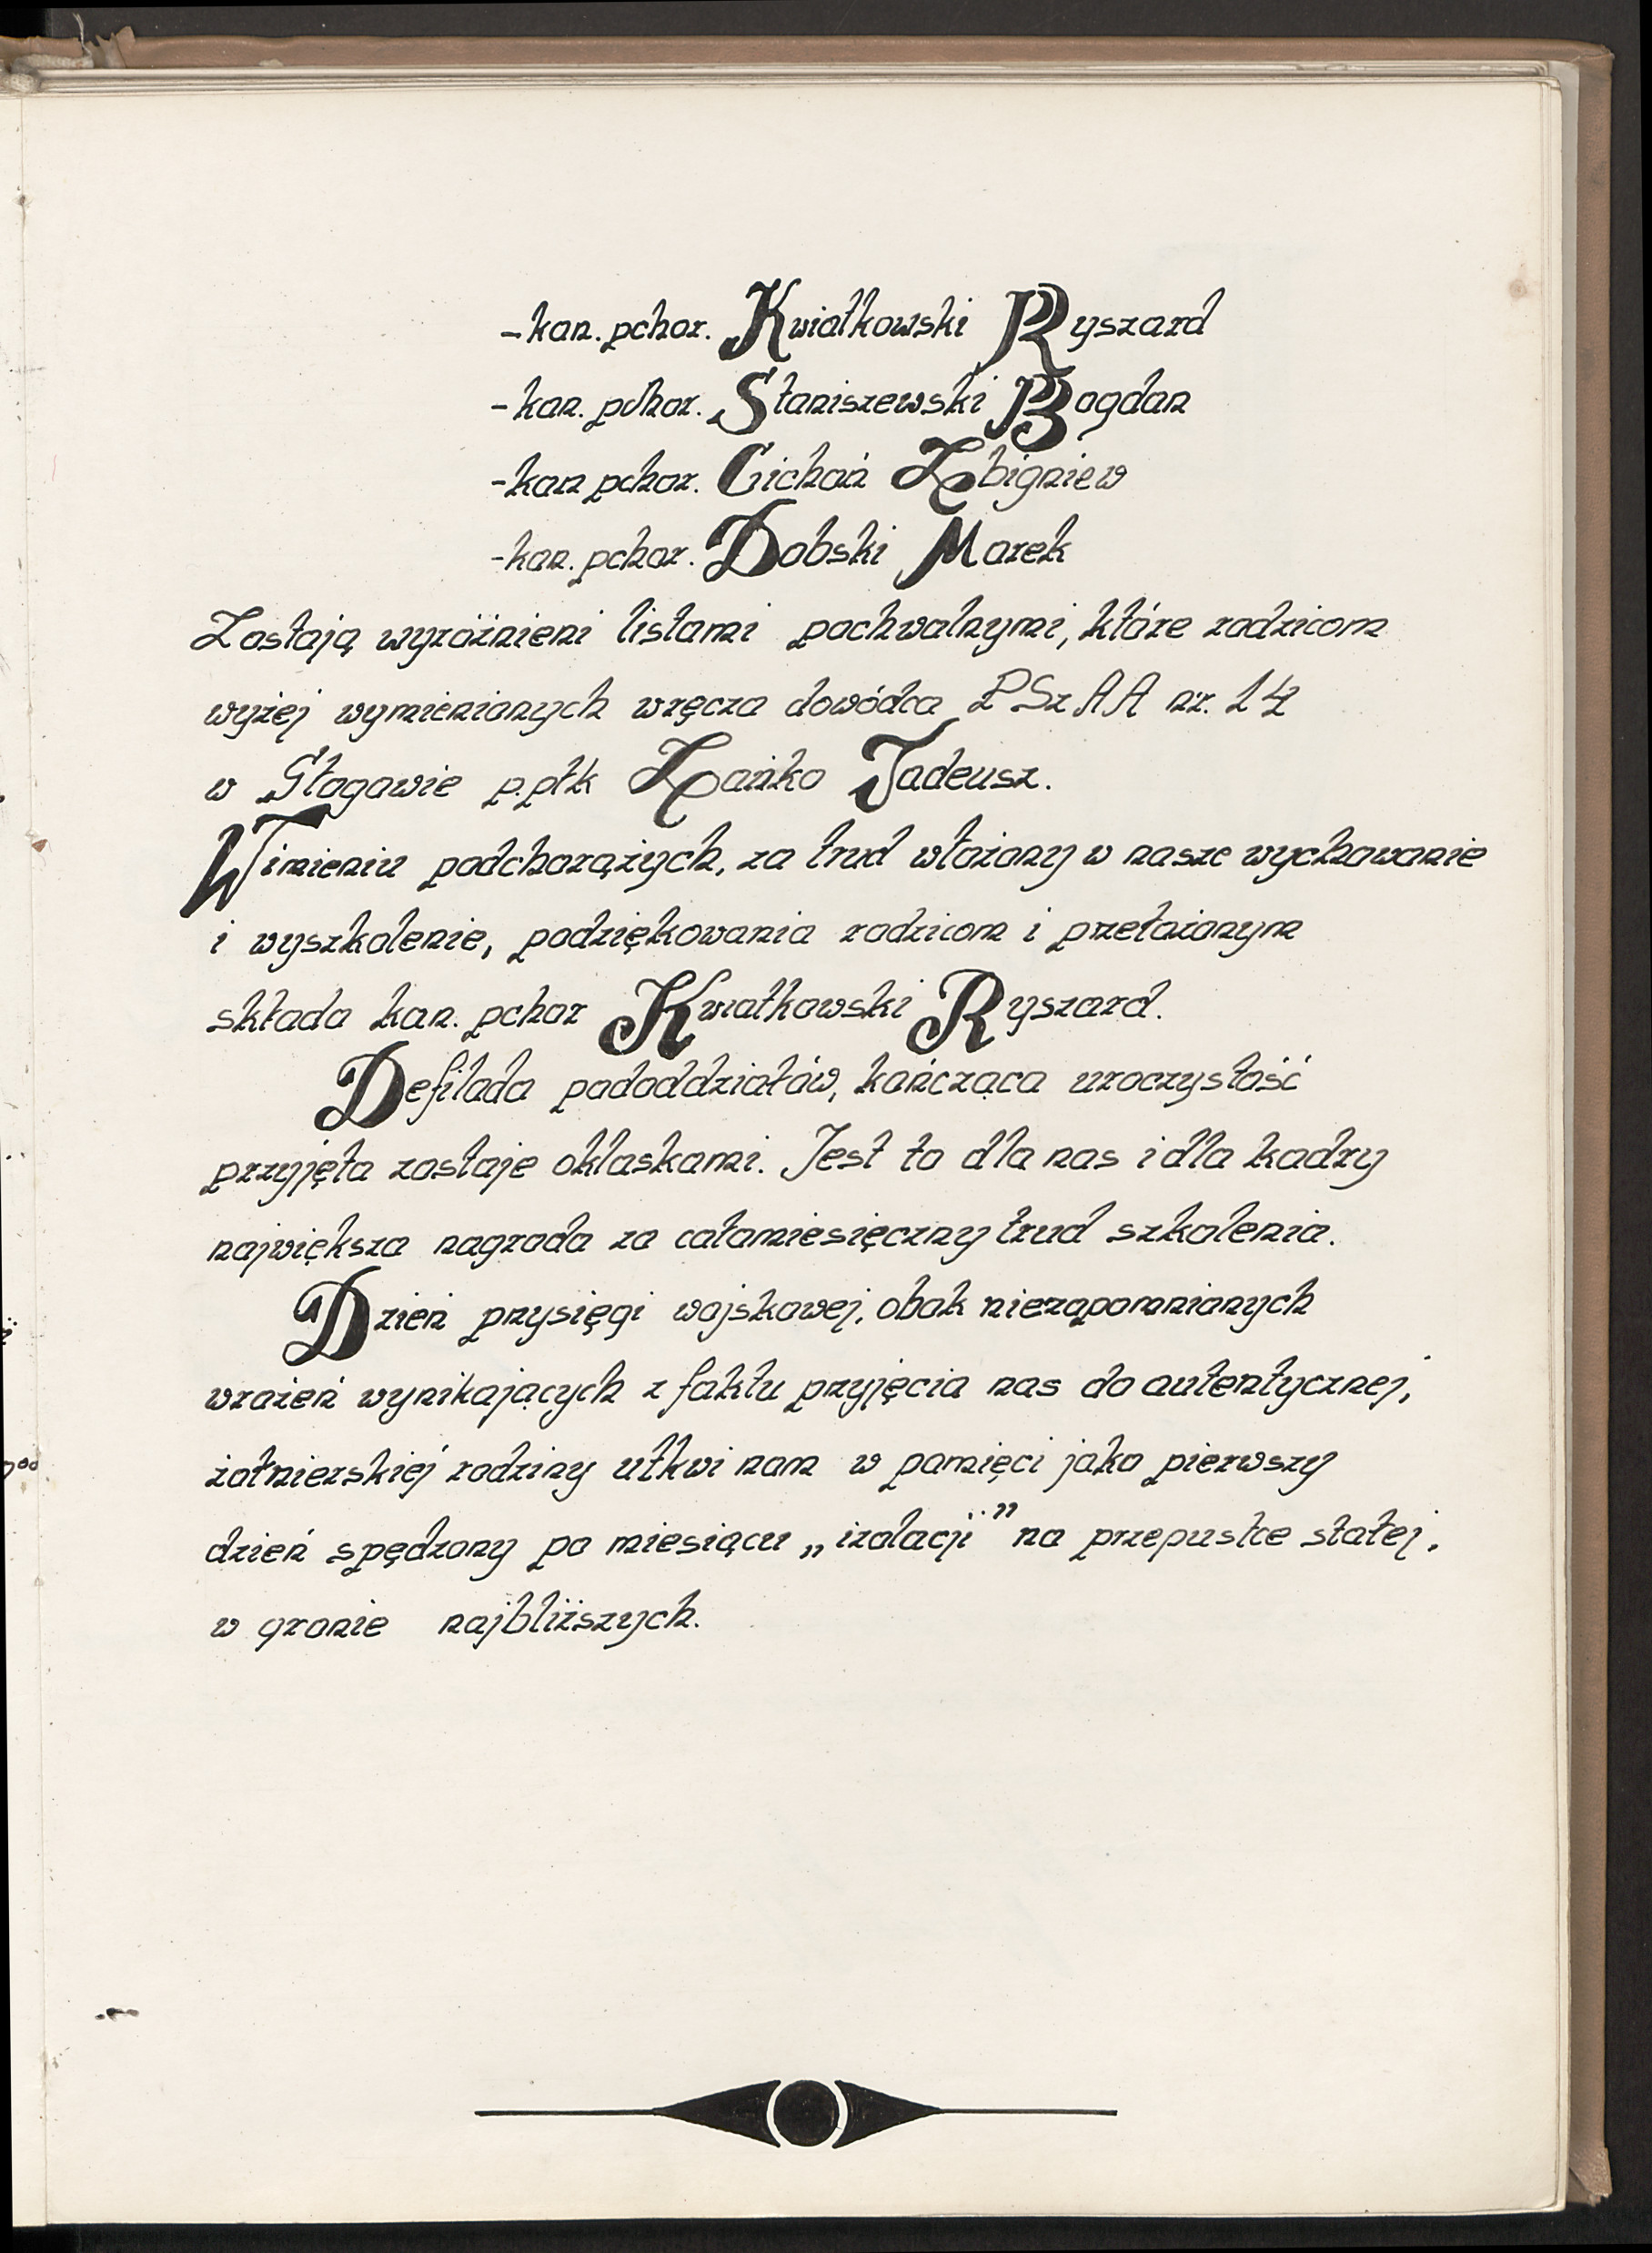 - kan. pchor. Kwiatkowski Ryszard
- kan. pchor. Staniszewski Bogdan
- kan pchor. Cichoń Zbigniew
- kan. pchor. Dobski Marek
Zostają wyróżnieni listami pochwalnymi, które rodzicom
wyżej wymienionych wręcza dowódca PSzAA nr. 14
w Głogowie p.płk Zańko Tadeusz.
W imieniu podchorążych, za trud włożony w nasze wychowanie
i wyszkolenie, podziękowania rodzicom i przełożonym
składa kan. pchor Kwiatkowski Ryszard.
Defilada pododdziałów, kończąca uroczystość
przyjęta zostaje oklaskami. Jest to dla nas i dla kadry
największa nagroda za całomiesięczny trud szkolenia.
Dzień przysięgi wojskowej, obok niezapomnianych
wrażeń wynikających z faktu przyjęcia nas do autentycznej,
żołnierskiej rodziny utkwi nam w pamięci jako pierwszy
dzień spędzony po miesiącu „izolacji" na przepustce stałej,
w gronie najbliższych.